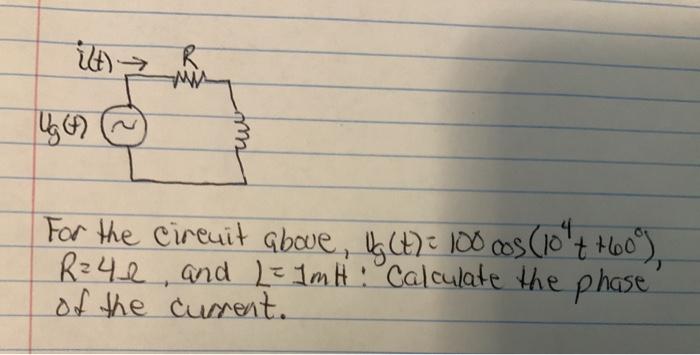 i(t) → R
Vg(t)
For the circuit above, Vg(t) = 100 cos(10⁴t + 60°),
R=4Ω, and L=1mH: Calculate the phase
of the current.